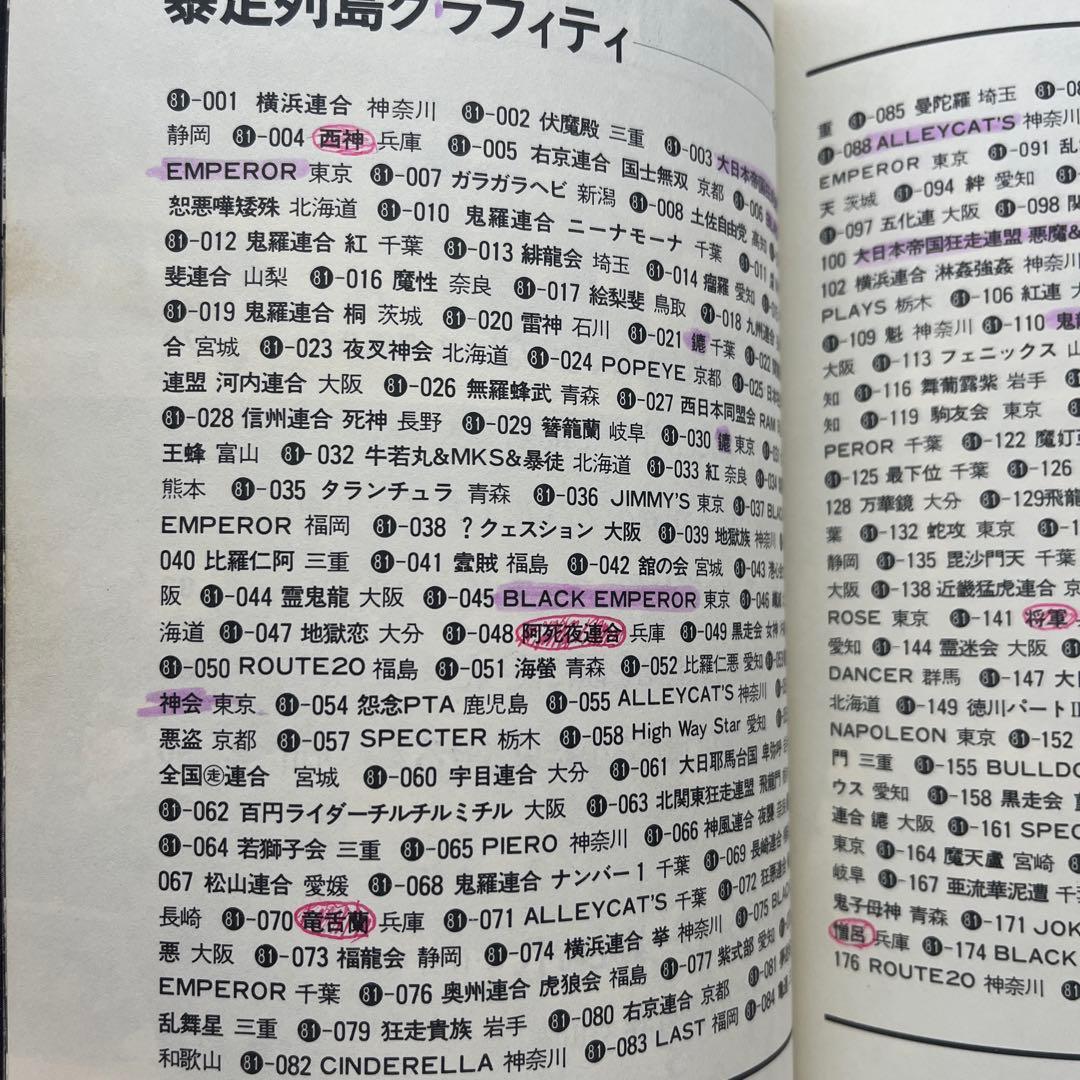 暴走列島グラフィティ
81-001 横浜連合 神奈川 81-002 伏魔殿 三重 81-003 大日本帝国
静岡 81-004 西神 兵庫 81-005 右京連合 国士無双 京都 81-006
EMPEROR 東京 81-007 ガラガラヘビ 新潟 81-008 土佐自由党 高知
恕悪嘩矮殊 北海道 81-010 鬼羅連合 ニーナモーナ 千葉 81-011
81-012 鬼羅連合 紅 千葉 81-013 緋龍会 埼玉 81-014 瘤羅 愛知
斐連合 山梨 81-016 魔性 奈良 81-017 絵梨斐 鳥取 81-018 九州連合
81-019 鬼羅連合 桐 茨城 81-020 雷神 石川 81-021 千葉 81-022
合 宮城 81-023 夜叉神会 北海道 81-024 POPEYE 京都 81-025 日本
連盟 河内連合 大阪 81-026 無羅蜂武 青森 81-027 西日本同盟会 RAM
81-028 信州連合 死神 長野 81-029 簪籠蘭 岐阜 81-030 東京
王蜂 富山 81-032 牛若丸&MKS&暴徒 北海道 81-033 紅 奈良 81-034
熊本 81-035 タランチュラ 青森 81-036 JIMMY'S 東京 81-037 BLAC
EMPEROR 福岡 81-038 ?クェスション 大阪 81-039 地獄族 神奈川
040 比羅仁阿 三重 81-041 賊 福島 81-042 舘の会 宮城 81-043
阪 81-044 霊鬼龍 大阪 81-045 BLACK EMPEROR 東京 81-046
海道 81-047 地獄恋 大分 81-048 阿死夜連合 兵庫 81-049 黒走会 女神
81-050 ROUTE20 福島 81-051 海螢 青森 81-052 比羅仁悪 愛知
神会 東京 81-054 怨念PTA 鹿児島 81-055 ALLEYCAT'S 神奈川
悪盗 京都 81-057 SPECTER 栃木 81-058 High Way Star 愛知
全国走連合 宮城 81-060 宇目連合 大分 81-061 大日耶馬台国 卑弥呼
81-062 百円ライダーチルチルミチル 大阪 81-063 北関東狂走連盟 飛龍門
81-064 若獅子会 三重 81-065 PIERO 神奈川 81-066 神風連合 夜襲
067 松山連合 愛媛 81-068 鬼羅連合 ナンバー1 千葉 81-069 長崎連合
長崎 81-070 竜舌蘭 兵庫 81-071 ALLEYCAT'S 千葉 81-072 狂悪連合
悪 大阪 81-073 福龍会 静岡 81-074 横浜連合 挙 神奈川 81-075 BLAC
EMPEROR 千葉 81-076 奥州連合 虎狼会 福島 81-077 紫式部 愛知
乱舞星 三重 81-079 狂走貴族 岩手 81-080 右京連合 京都 81-081
和歌山 81-082 CINDERELLA 神奈川 81-083 LAST 福岡 81-084
重 81-085 曼陀羅 埼玉 81-08
81-088 ALLEYCAT'S 神奈川
EMPEROR 東京 81-091 乱
天 茨城 81-094 絆 愛知 81-
81-097 五化連 大阪 81-098 関
100 大日本帝国狂走連盟 悪魔&
102 横浜連合 淋姦強姦 神奈川
PLAYS 栃木 81-106 紅連 大
81-109 魁 神奈川 81-110 鬼
大阪 81-113 フェニックス 山
知 81-116 舞葡露紫 岩手
知 81-119 駒友会 東京
PEROR 千葉 81-122 魔
81-125 最下位 千葉 81-126
128 万華鏡 大分 81-129 飛龍
葉 81-132 蛇攻 東京 81-1
静岡 81-135 毘沙門天 千葉
大阪 81-138 近畿猛虎連合 京
ROSE 東京 81-141 将軍
愛知 81-144 霊迷会 大阪
DANCER 群馬 81-147 大日
北海道 81-149 徳川パートⅡ
NAPOLEON 東京 81-152
門 三重 81-155 BULLDO
ウス 愛知 81-158 黒走会
連合 大阪 81-161 SPEC
東京 81-164 魔天盧 宮崎
岐阜 81-167 亜流華泥遭 千
鬼子母神 青森 81-171 JOK
僧呂 兵庫 81-174 BLACK
176 ROUTE20 神奈川